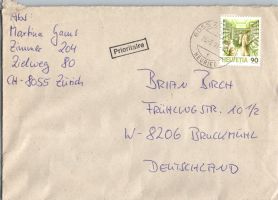 Abs
Martina Gams
Zimmer 204
Zielweg 80
CH-8055 Zürich
Prioritaire
HELVETIA 90
BRIAN BIRCH
FRÜHLUGSTR. 10 1/2
W-8206 BRUCKMÜHL
DEUTSCHLAND